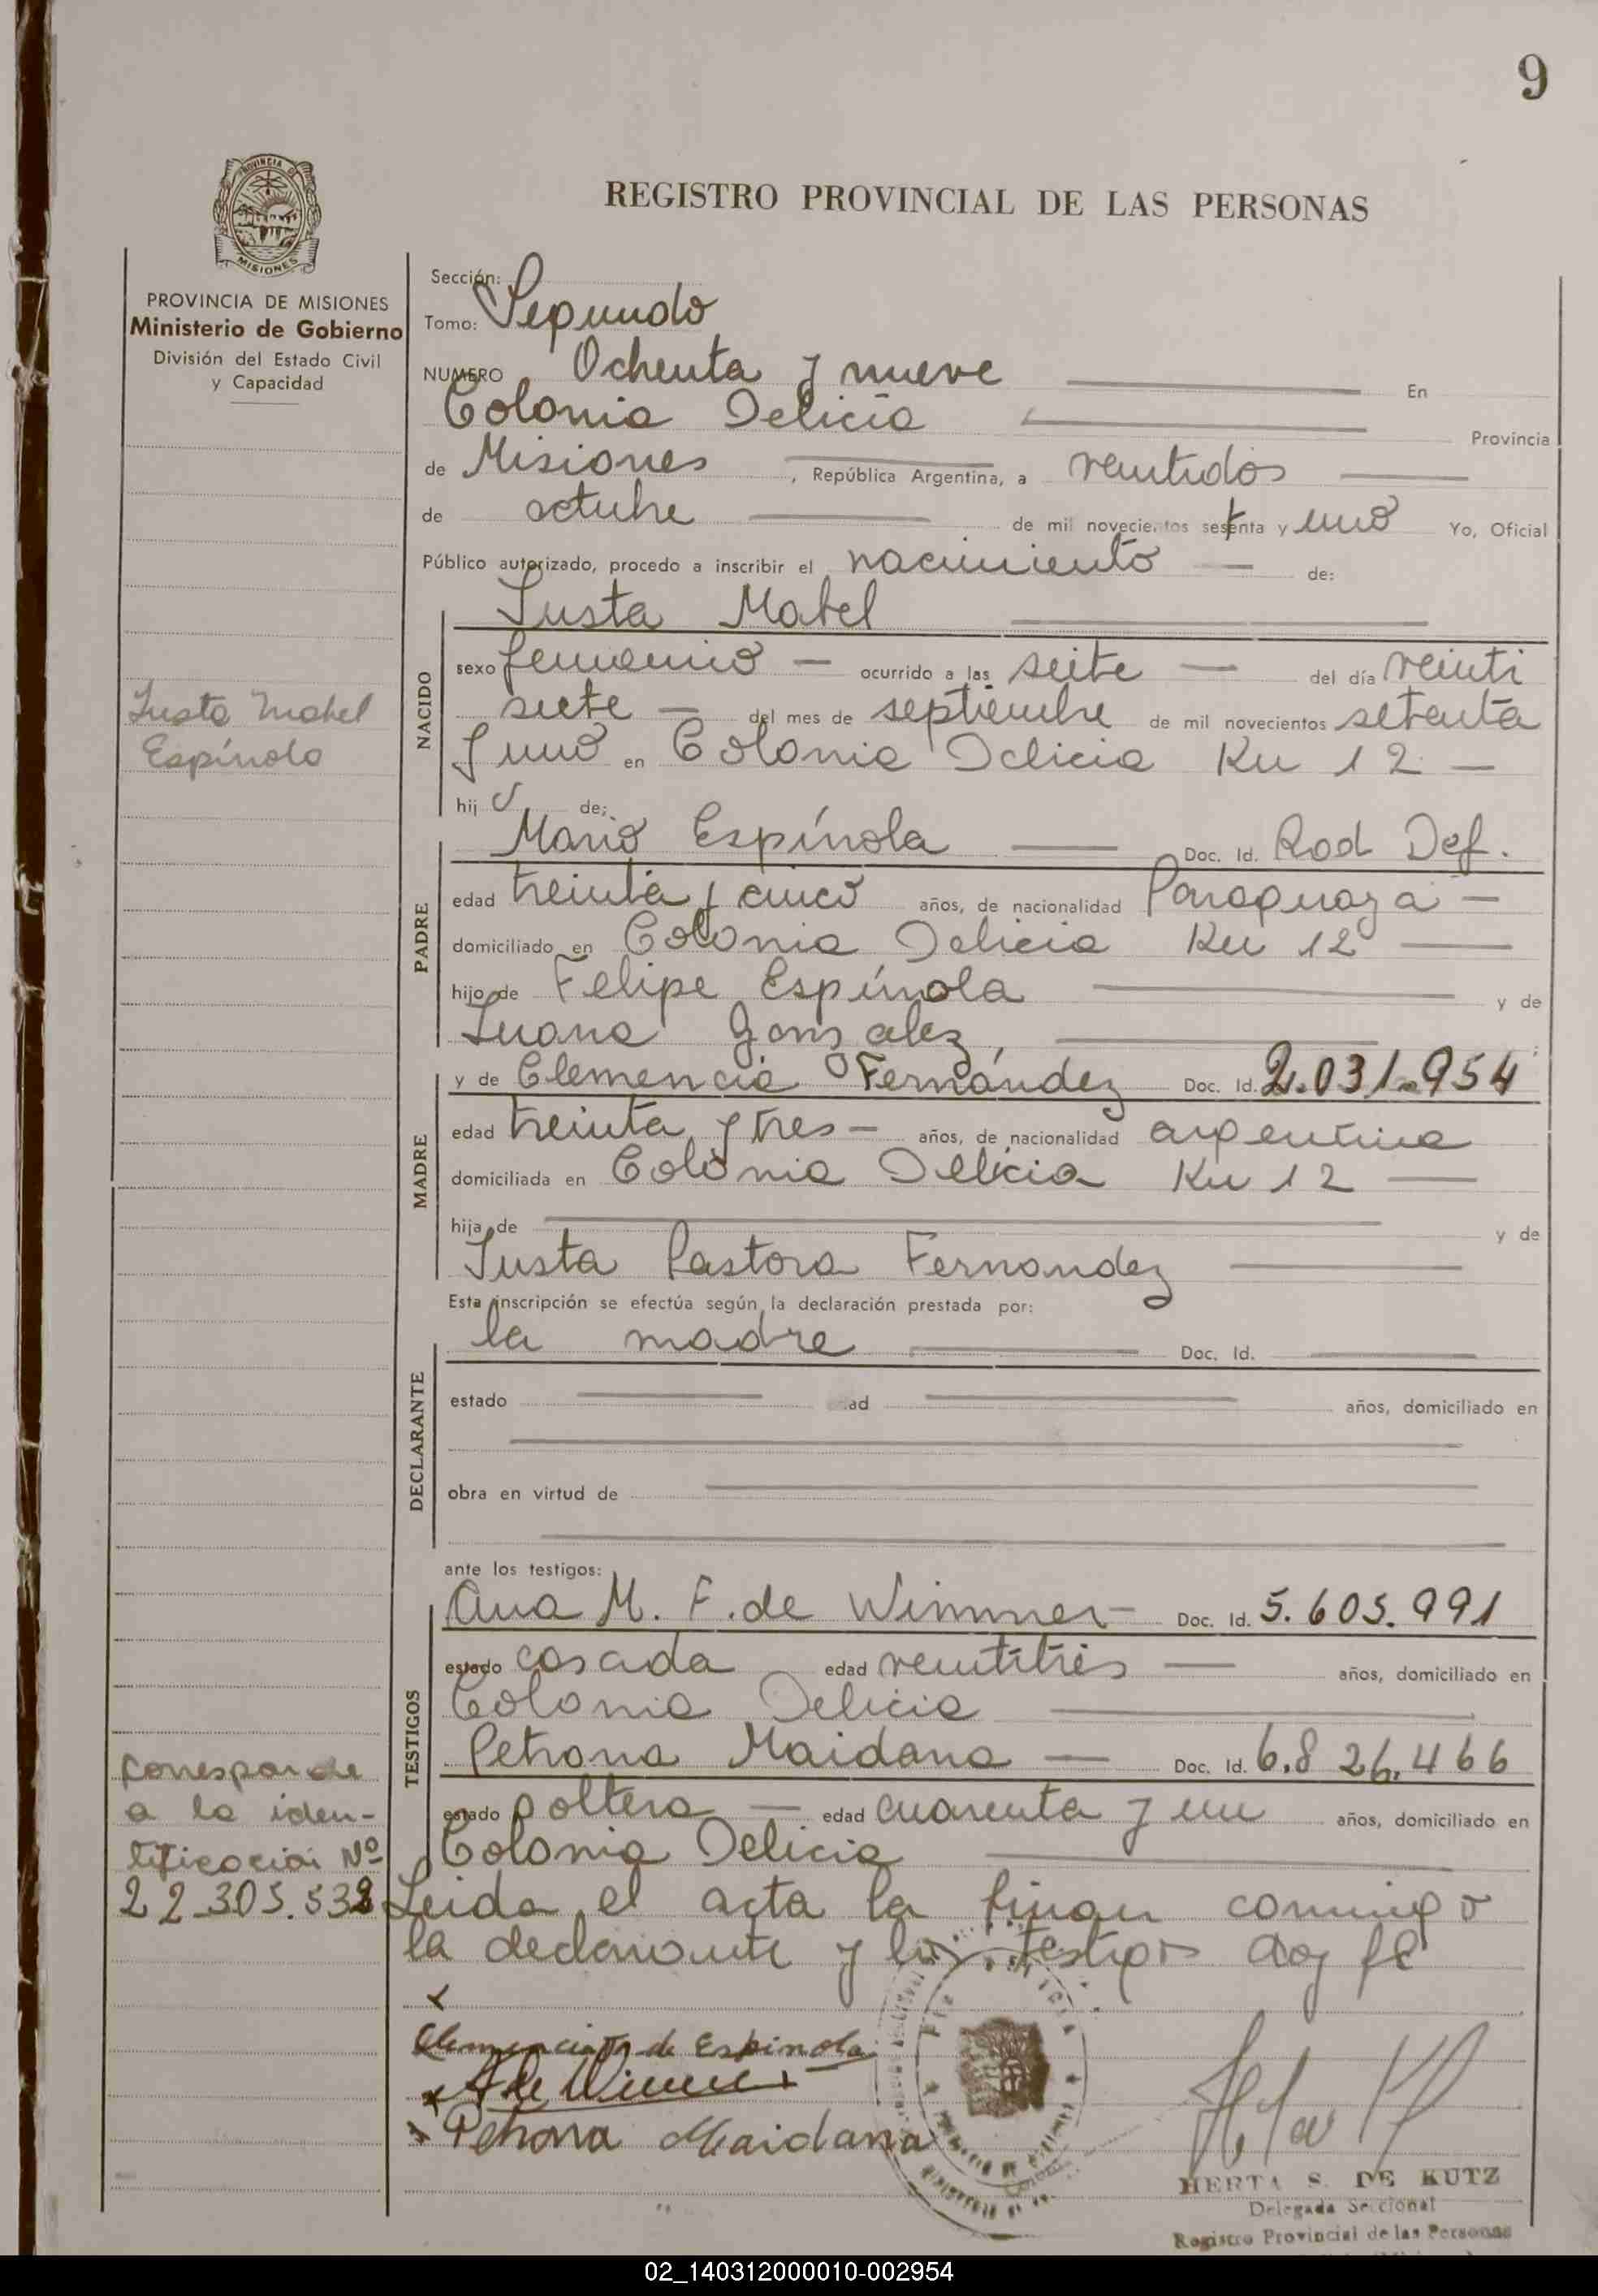 9
REGISTRO PROVINCIAL DE LAS PERSONAS
PROVINCIA DE MISIONES
PROVINCIA DE MISIONES
Ministerio de Gobierno
División del Estado Civil
y Capacidad
Justa Mabel
Espínola
Corresponde
a la iden-
tificación Nº
22.305.532
Sección:
Tomo: Segundo
NUMERO Ochenta y nueve En
Colonia Delicia Provincia
de Misiones, República Argentina, a veintidos
de octubre de mil novecientos setenta y uno Yo, Oficial
Público autorizado, procedo a inscribir el nacimiento de:
Justa Mabel
NACIDO
sexo femenino — ocurrido a las seite — del día veinti
siete — del mes de septiembre de mil novecientos setenta
y uno en Colonia Delicia Km 12 —
hij de:
PADRE
Mario Espínola Doc. Id. Rad Def.
edad treinta y cinco años, de nacionalidad Paraguaya —
domiciliado en Colonia Delicia Km 12
hijo de Felipe Espínola y de
Juana Gonzalez,
MADRE
y de Clemencia Fernández Doc. Id. 2.031.954
edad treinta y tres — años, de nacionalidad argentina
domiciliada en Colonia Delicia Km 12
hija de y de
Justa Pastora Fernandez
Esta inscripción se efectúa según la declaración prestada por:
DECLARANTE
la madre Doc. Id.
estado edad años, domiciliado en
obra en virtud de
ante los testigos:
TESTIGOS
Ana M. F. de Wimmer — Doc. Id. 5.605.991
estado casada edad veintitres — años, domiciliado en
Colonia Delicia
Petrona Maidana — Doc. Id. 6.826.466
estado soltera — edad cuarenta y un años, domiciliado en
Colonia Delicia
Leida el acta la firman conmigo
la declarante y los testigos doy fe
Clemencia F. de Espinola
A de Wimmer
Petrona Maidana
HERTA S. DE KUTZ
Delegada Seccional
Registro Provincial de las Personas
02_140312000010-002954